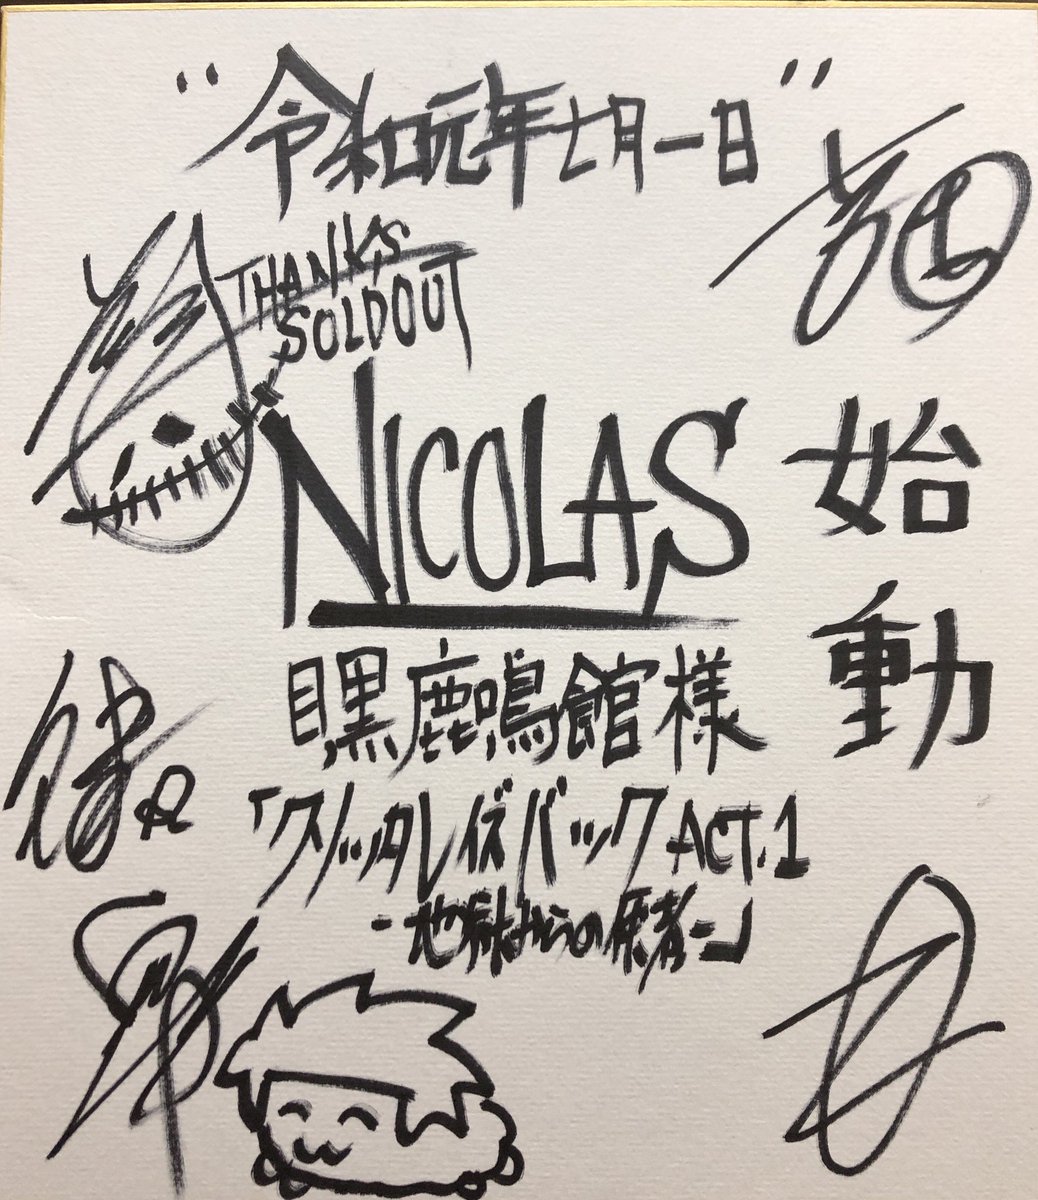 "令和元年七月一日"
THANKS
SOLDOUT
NICOLAS
始動
目黒鹿鳴館様
「クリッタレイズバックACT.1
-地獄からの使者-」